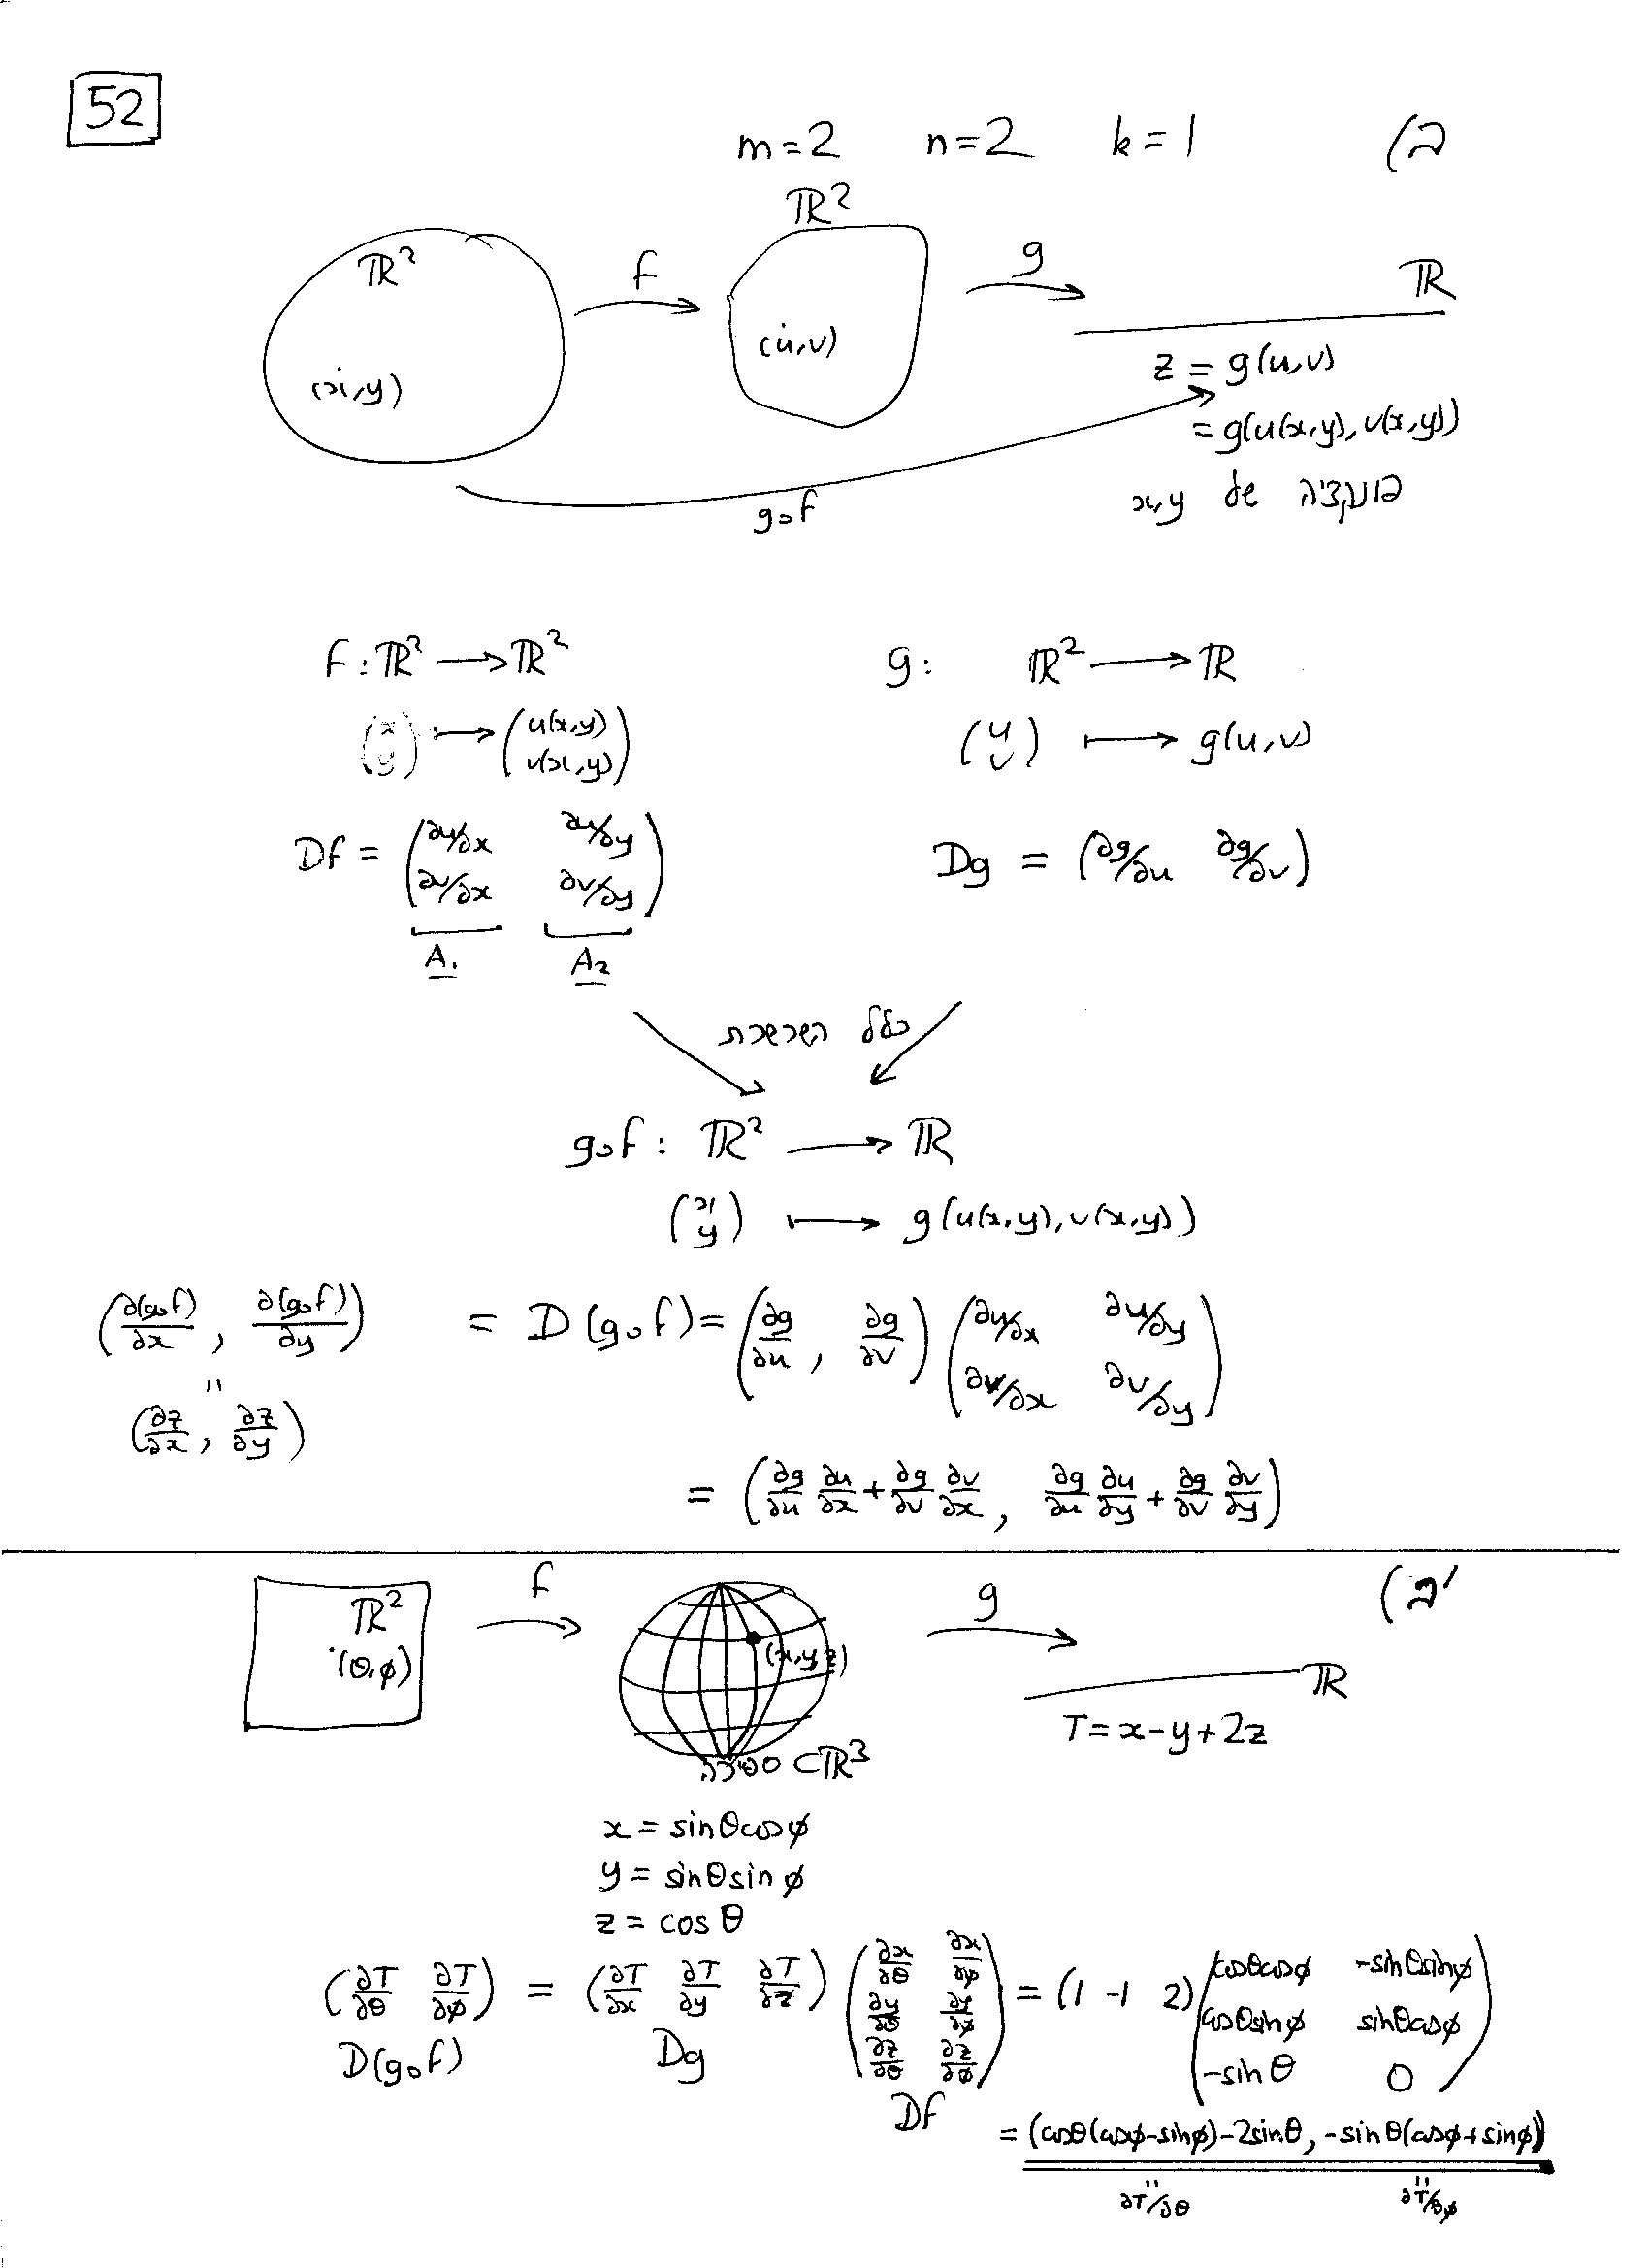 52
m=2 n=2 k=1 (ב
ℝ² ℝ² ℝ
f g
(x,y) (u,v)
z = g(u,v)
= g(u(x,y), v(x,y))
פונקציה של x,y
g∘f
f: ℝ² → ℝ² g: ℝ² → ℝ
(x y) ↦ (u(x,y) v(x,y)) (u v) ↦ g(u,v)
Df = (∂u/∂x ∂u/∂y
∂v/∂x ∂v/∂y) Dg = (∂g/∂u ∂g/∂v)
A₁ A₂
כלל השרשרת
g∘f: ℝ² → ℝ
(x y) ↦ g(u(x,y), v(x,y))
(∂(g∘f)/∂x, ∂(g∘f)/∂y) = D(g∘f) = (∂g/∂u, ∂g/∂v) (∂u/∂x ∂u/∂y
∂v/∂x ∂v/∂y)
"
(∂z/∂x, ∂z/∂y)
= (∂g/∂u ∂u/∂x + ∂g/∂v ∂v/∂x, ∂g/∂u ∂u/∂y + ∂g/∂v ∂v/∂y)
(ב'
ℝ² f g
(θ,φ) (x,y,z) ℝ
T = x-y+2z
ספירה ⊂ ℝ³
x = sinθcosφ
y = sinθsinφ
z = cosθ
(∂T/∂θ ∂T/∂φ) = (∂T/∂x ∂T/∂y ∂T/∂z) (∂x/∂θ ∂x/∂φ
∂y/∂θ ∂y/∂φ
∂z/∂θ ∂z/∂φ) = (1 -1 2) (cosθcosφ -sinθsinφ
cosθsinφ sinθcosφ
-sinθ 0)
D(g∘f) Dg Df
= (cosθ(cosφ-sinφ)-2sinθ, -sinθ(cosφ+sinφ))
" "
∂T/∂θ ∂T/∂φ